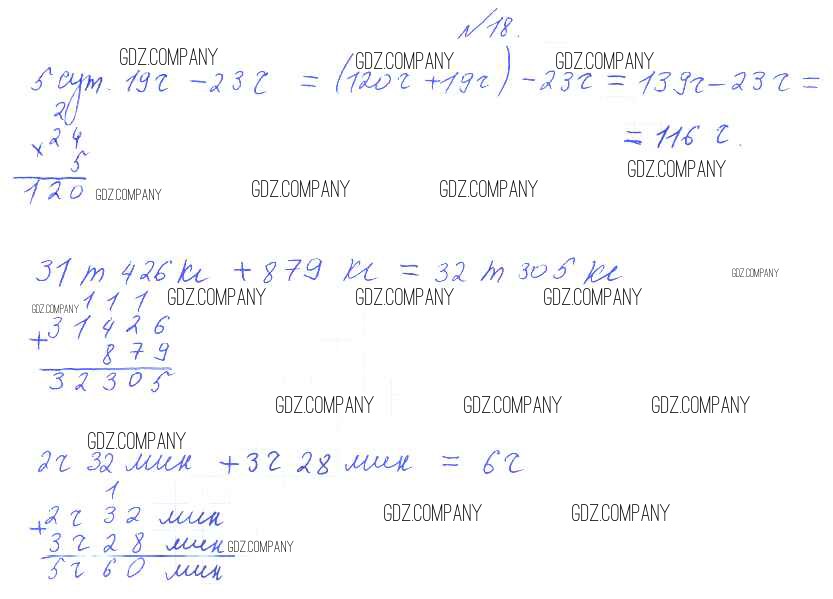 №18.
GDZ.COMPANY GDZ.COMPANY GDZ.COMPANY
5 сут. 19ч - 23ч = (120ч + 19ч) - 23ч = 139ч - 23ч =
2
× 24
= 116 ч.
5
GDZ.COMPANY
120
GDZ.COMPANY GDZ.COMPANY GDZ.COMPANY
31 т 426 кг + 879 кг = 32 т 305 кг
GDZ.COMPANY
GDZ.COMPANY 111 GDZ.COMPANY GDZ.COMPANY GDZ.COMPANY
+ 31426
879
32305
GDZ.COMPANY GDZ.COMPANY GDZ.COMPANY
GDZ.COMPANY
2ч 32 мин + 3ч 28 мин = 6ч
1
+ 2ч 32 мин
GDZ.COMPANY GDZ.COMPANY
3ч 28 мин
GDZ.COMPANY
5ч 60 мин